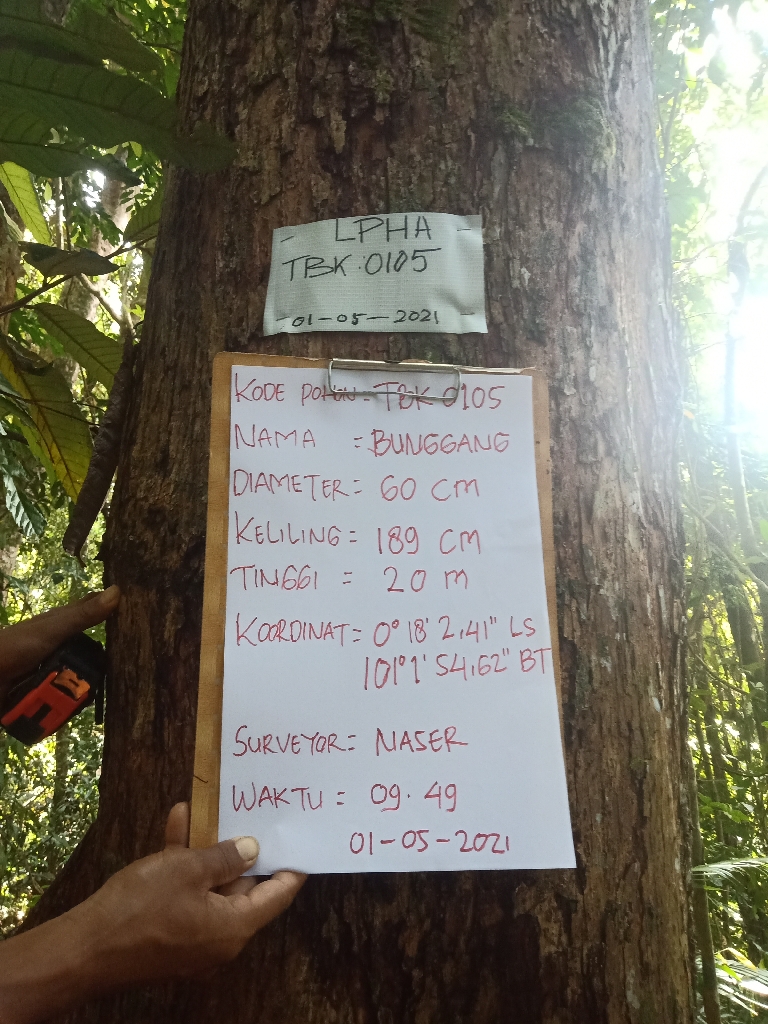 LPHA
TBK.0105
01-05-2021
KODE POHON = TBK 0105
NAMA = BUNGGANG
DIAMETER = 60 cm
KELILING = 189 CM
TINGGI = 20 m
KOORDINAT = 0° 18' 2,41" LS
101° 1' 54,62" BT
SURVEYOR = NASER
WAKTU = 09.49
01-05-2021